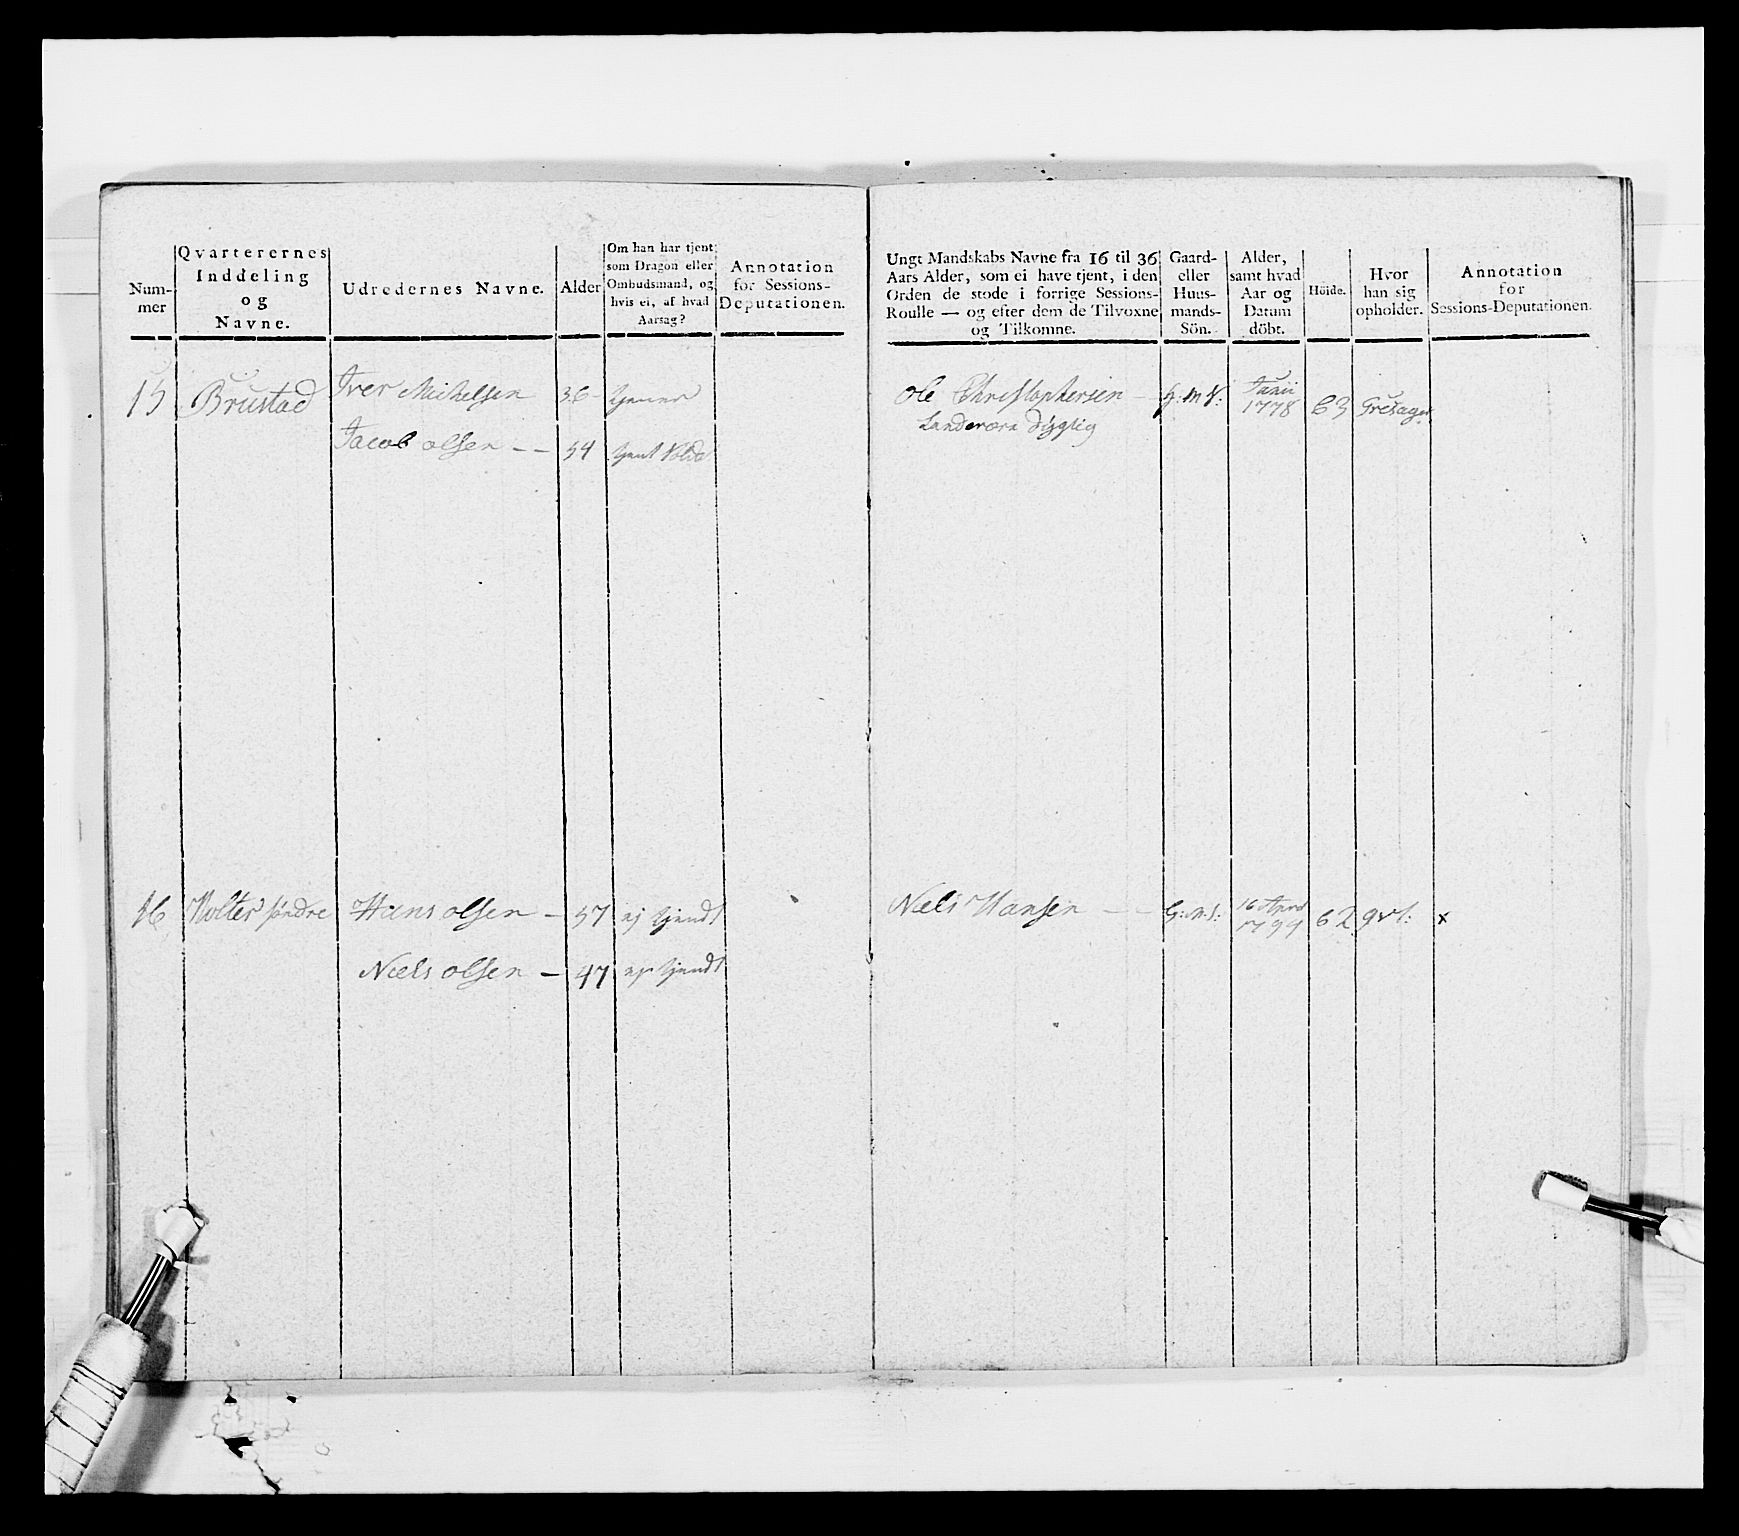 Num-
mer
Qvarterernes
Inddeling
og
Navne.
Udredernes Navne.
Alder
Om han har tjent
som Dragon eller
Ombudsmand, og
hvis ei, af hvad
Aarsag?
Annotation
for Sessions-
Deputationen.
Ungt Mandskabs Navne fra 16 til 36
Aars Alder, som ei have tjent, i den
Orden de stode i forrige Sessions-
Roulle — og efter dem de Tilvoxne
og Tilkomne.
Gaard-
eller
Huus-
mands-
Sön.
Alder,
samt hvad
Aar og
Datum
döbt.
Höide.
Hvor
han sig
opholder.
Annotation
for
Sessions-Deputationen.
15 Brustad Iver Michelsen 36 tjener
Jacob olsen - - 54 tjent
ole Christophersen - G: M S: Junii
1778 63
Landværn dygtig
16 Holter søndre Hans olsen - 57 ej tjendt
Niels olsen - 47 ej tjendt
Niels Hansen - - G: M: S: 16 April
1799 62 qvt: x